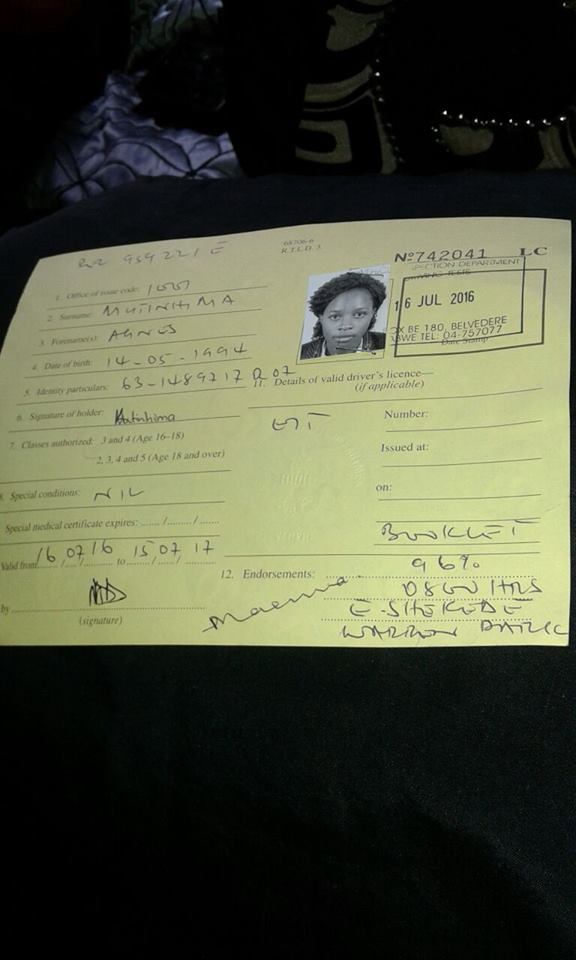 959221 E
68706-6
R.T.L.D. 3.
Nº 742041 LC
INSPECTION DEPARTMENT
16 JUL 2016
BOX BE 180, BELVEDERE
TEL: 04-757077
Date Stamp
1. Office of issue code:
2. Surname:
3. Forename(s): AGNES
4. Date of birth: 14-05-1994
5. Identity particulars: 63-1489217 R 07
6. Signature of holder:
7. Classes authorized: 3 and 4 (Age 16–18)
2, 3, 4 and 5 (Age 18 and over)
8. Special conditions: NIL
Special medical certificate expires: ....... /......... /.......
Valid from 16/07/16 to 15/07/17
by
(signature)
11. Details of valid driver's licence—
(if applicable)
Number:
Issued at:
on:
BOOKLET
12. Endorsements: 96%
0800 HRS
WARREN PARK